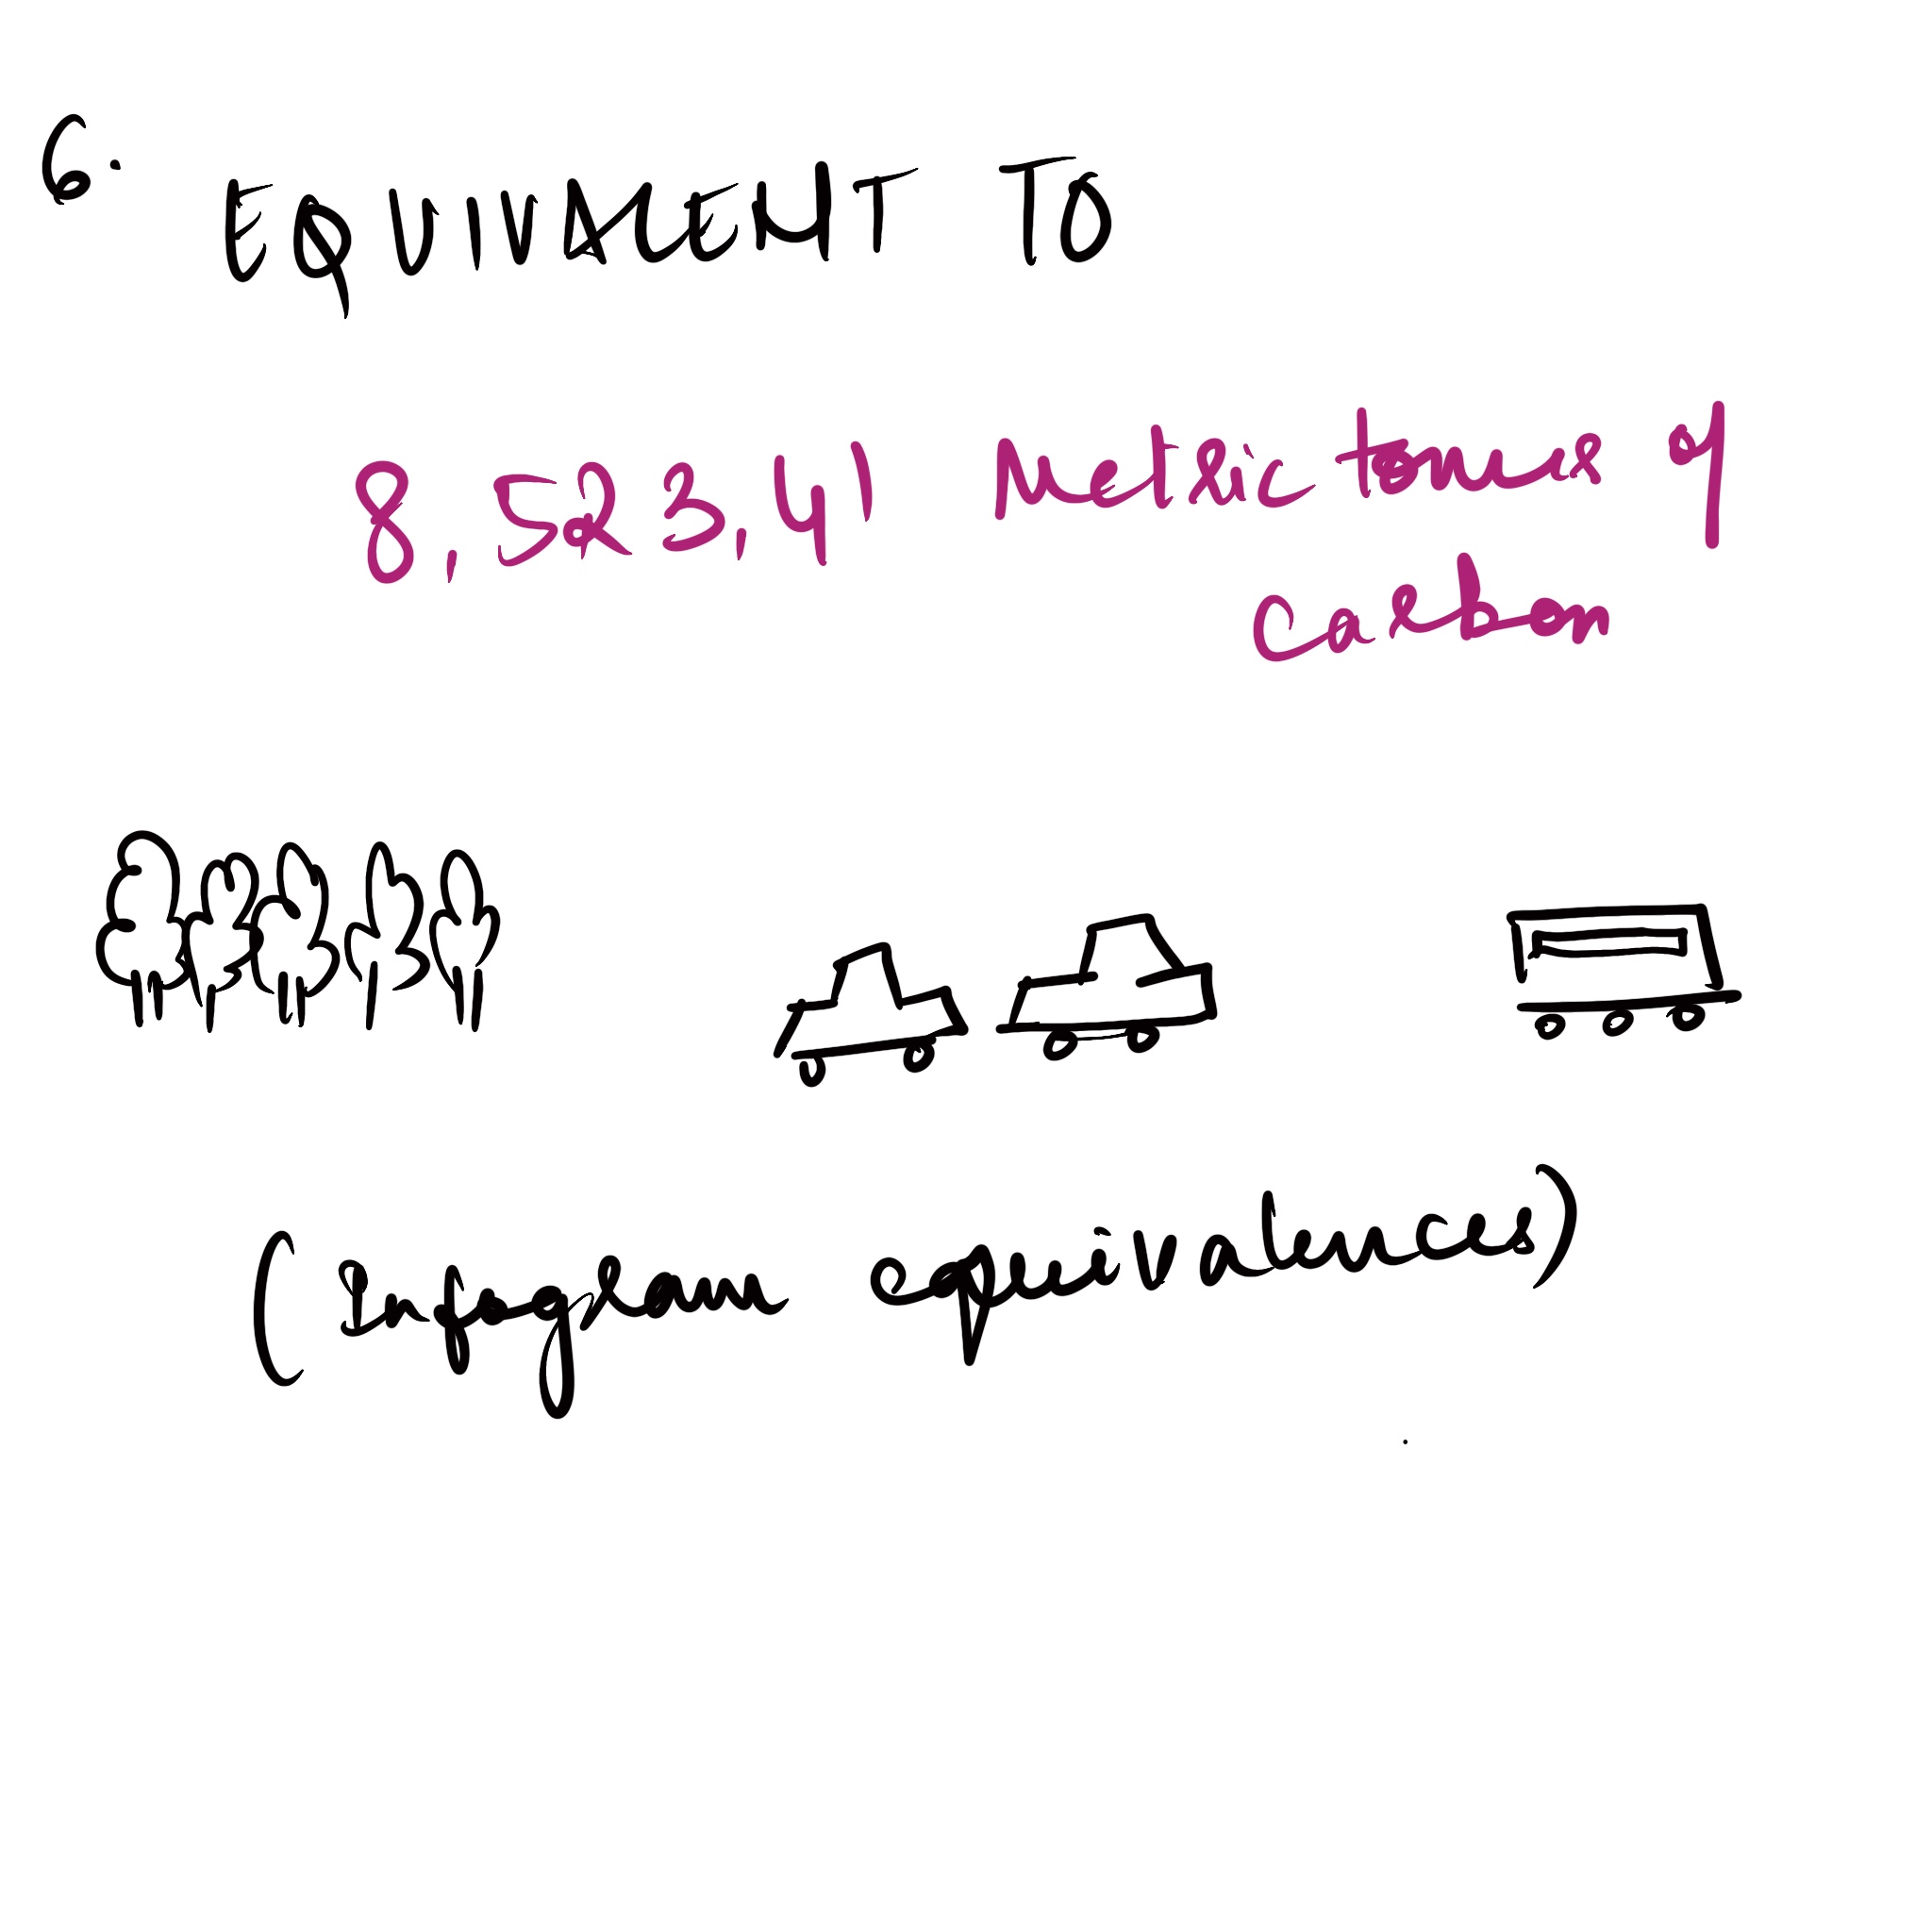 6.
EQUIVALENT TO
8,523,41 Metric tonnes of
carbon
(infogram equivalences)